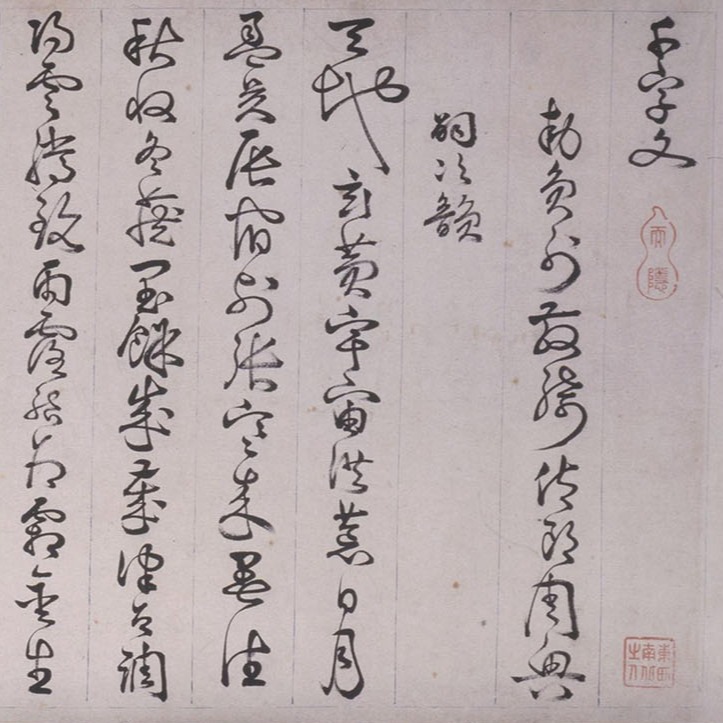 千字文
敕員外散騎侍郎周興
嗣次韻
天地玄黃宇宙洪荒日月
盈昃辰宿列張寒來暑往
秋收冬藏閏餘成歲律召調
陽雲騰致雨露結為霜金生
東西南北之人